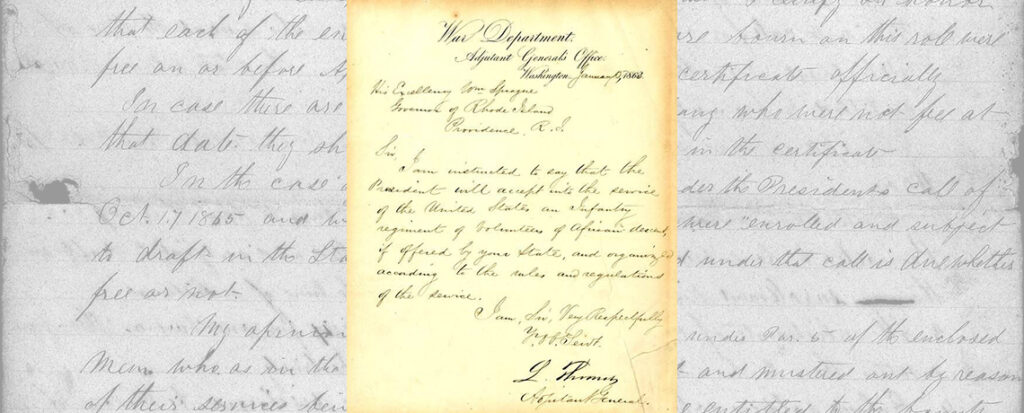 War Department.
Adjutant General's Office.
Washington January 15, 1863.
His Excellency Wm Sprague
Governor of Rhode Island
Providence, R. I.
Sir,
I am instructed to say that the
President will accept into the service
of the United States an Infantry
regiment of Volunteers of African descent,
if offered by your State, and organized
according to the rules and regulations
of the service.
I am, Sir, Very Respectfully
L. Thomas
Adjutant General.
that each of the en
free on or before A
In case there are
that date they sh
In the case
Oct. 17 1865 and
to draft in the Sta
free or not.
My opinion
Men who as in the
of their services bein
on honor
are bourn on this role were
certificate officially
who were not free at
in the certificate
der the President's call of
were "enrolled and subject
under that call is due whether
under Par. 5 of the enclosed
and mustered out by reason
entitled to the